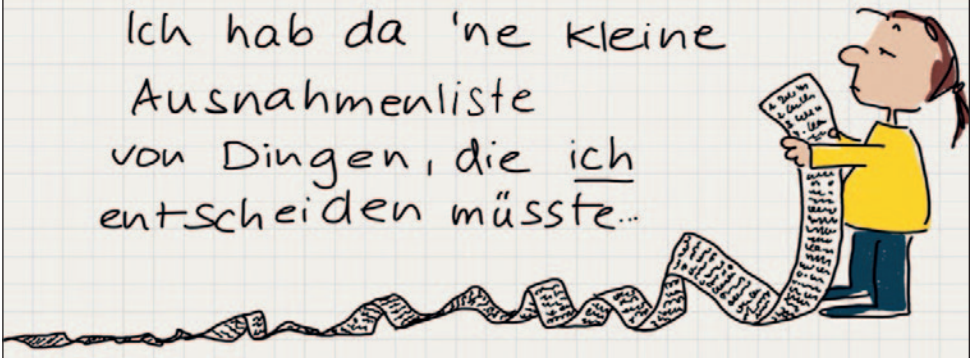 Ich hab da 'ne kleine
Ausnahmenliste
von Dingen, die ich
entscheiden müsste...